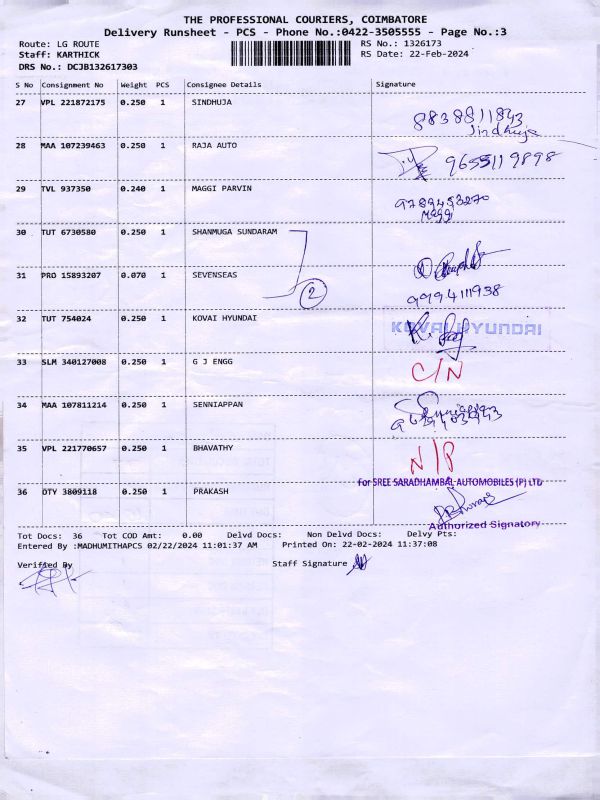 THE PROFESSIONAL COURIERS, COIMBATORE
Delivery Runsheet - PCS - Phone No.:0422-3505555 - Page No.:3
Route: LG ROUTE RS No.: 1326173
Staff: KARTHICK RS Date: 22-Feb-2024
DRS No.: DCJB132617303
S No Consignment No Weight PCS Consignee Details Signature
27 VPL 221872175 0.250 1 SINDHUJA
8838811843
Sindhuja
28 MAA 107239463 0.250 1 RAJA AUTO 9655119898
29 TVL 937350 0.240 1 MAGGI PARVIN 9789453270
Maggi
30 TUT 6730580 0.250 1 SHANMUGA SUNDARAM
31 PRO 15893207 0.070 1 SEVENSEAS
2 9994111938
32 TUT 754024 0.250 1 KOVAI HYUNDAI KOVAI HYUNDAI
33 SLM 340127008 0.250 1 G J ENGG C/N
34 MAA 107811214 0.250 1 SENNIAPPAN
35 VPL 221770657 0.250 1 BHAVATHY N/P
For SREE SARADHAMBAL AUTOMOBILES (P) LTD
36 OTY 3809118 0.250 1 PRAKASH
Authorized Signatory
Tot Docs: 36 Tot COD Amt: 0.00 Delvd Docs: Non Delvd Docs: Delvy Pts:
Entered By :MADHUMITHAPCS 02/22/2024 11:01:37 AM Printed On: 22-02-2024 11:37:08
Verified By Staff Signature